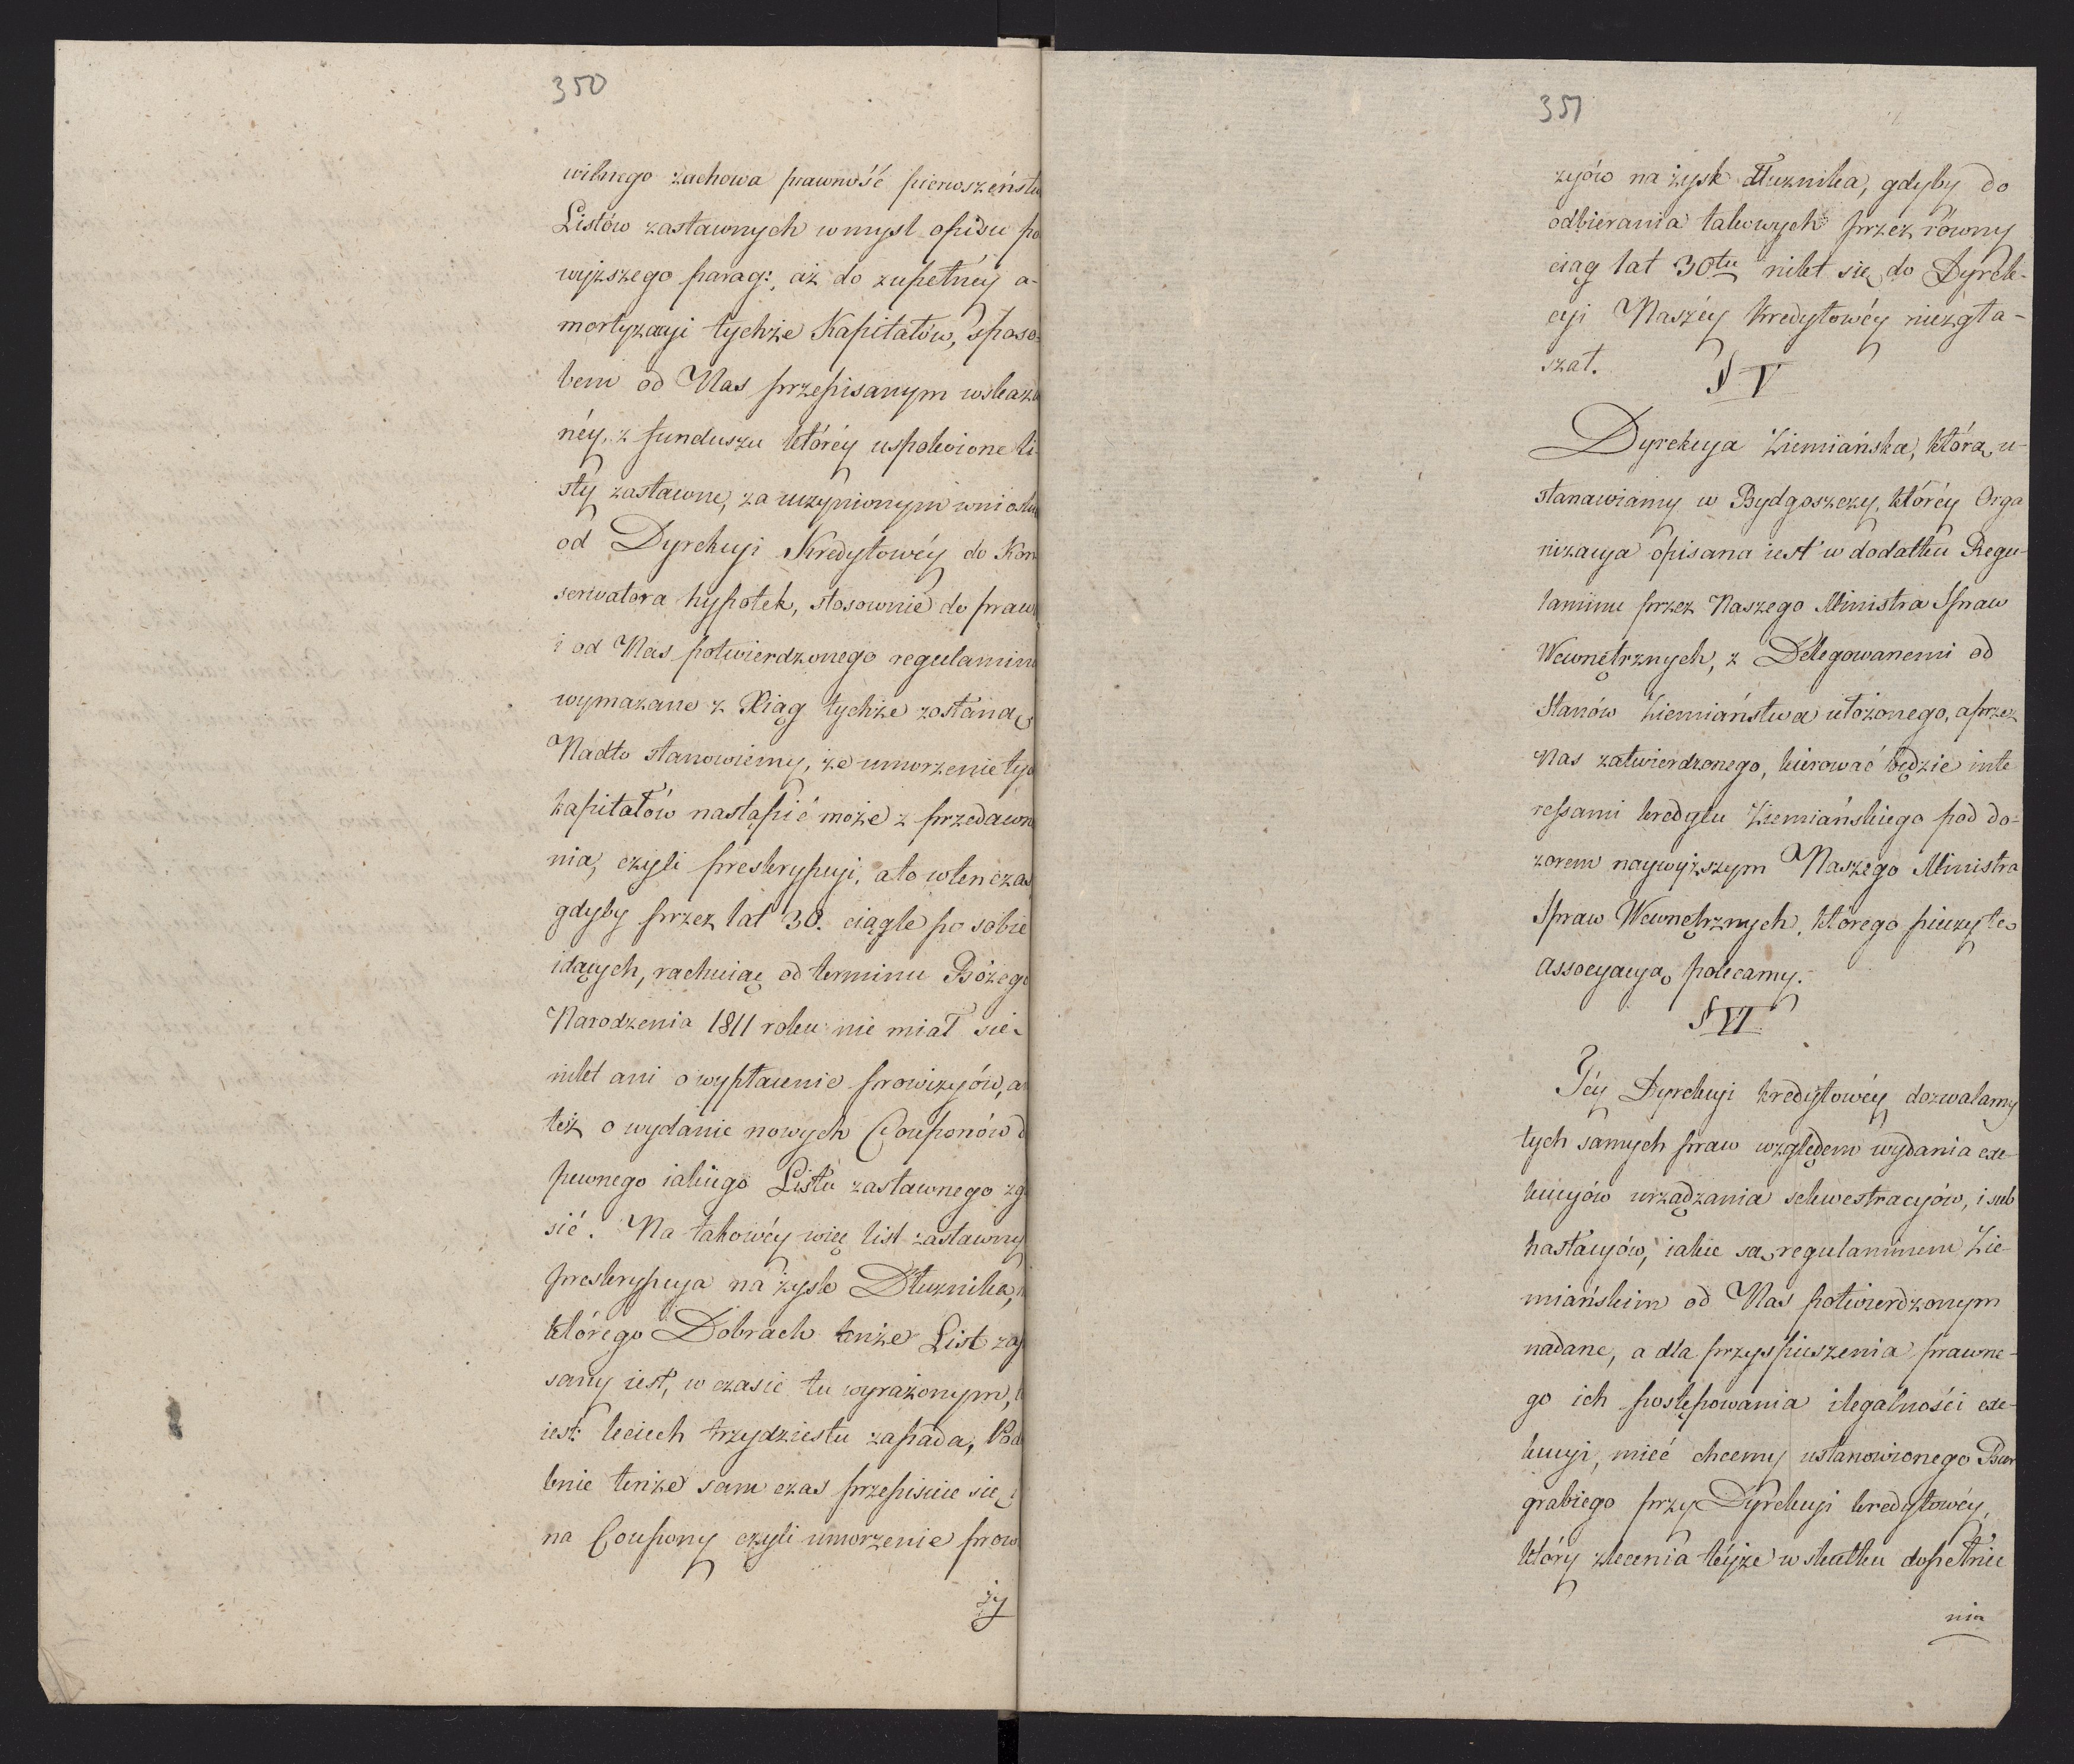 350
wilnego zachowa prawność pierwszeństw
Listów zastawnych w mysl opisu po
wyższego parag:, aż do zupełnéy a-
mortyzacyi tychże Kapitałów, sposo-
bem od Nas przepisanym wskaza
néy, z funduszu któréy uspokoione li-
sty zastawne, za uczynionym wniosk
od Dyrekcyi Kredytowéy do Kon
serwatora hypotek, stosownie do praw
i od Nas potwierdzonego regulaminu
wymazane z Xiąg tychże zostaną
Nadto stanowiemy, że umorzenie tych
kapitałów nastąpić może z przedawn
nia, czyli preskrypcyi, a to wtenczas
gdyby przez lat 30. ciągle po sobie
idących, rachuiąc od terminu Bożego
Narodzenia 1811 roku nie miał się
nikt ani o wypłacenie prowizyów, a
też o wydanie nowych Couponów d
pewnego iakiego Listu zastawnego zg
sić. Na takowéy więc list zastawny
preskrypcya na zysk Dłuznika,
którego Dobrach tenże List zap
sany iest, w czasie tu wyrażonym,
iest: leciech trzydziestu zapada, Pod
bnie tenże sam czas przepisuie się
na Coupony czyli umorzenie prow
zy
351
zyów na zysk dłuznika, gdyby do
odbierania takowych przez równy
ciąg lat 30tu nikt się do Dyrek-
cyi Naszéy Kredytowéy niezgła-
szał.
§ V
Dyrekcya Ziemiańska, którą u-
stanawiamy w Bydgoszczy, któréy Orga
nizacya opisana iest w dodatku Regu-
laminu przez Naszego Ministra Spraw
Wewnętrznych, z Delegowanemi od
Stanów Ziemiaństwa ułożonego, a przez
Nas zatwierdzonego, kierować będzie inte
ressami kredytu Ziemiańskiego pod do-
zorem naywyższym Naszego Ministra
Spraw Wewnętrznych, którego pieczy tę
Associacyą polecamy.
§ VI
Téy Dyrekcyi kredytowéy dozwalamy
tych samych praw względem wydania exe-
kucyów urządzania sekwestracyów, i sub
hastacyów, iakie są regulaminem Zie-
miańskim od Nas potwierdzonym
nadane, a dla przyspieszenia prawne-
go ich postępowania i legalności exe-
kucyi, mieć chcemy ustanowionego Bur
grabiego przy Dyrekcyi kredytowéy,
który zlecenia téyże w skutku dopełnie
nia